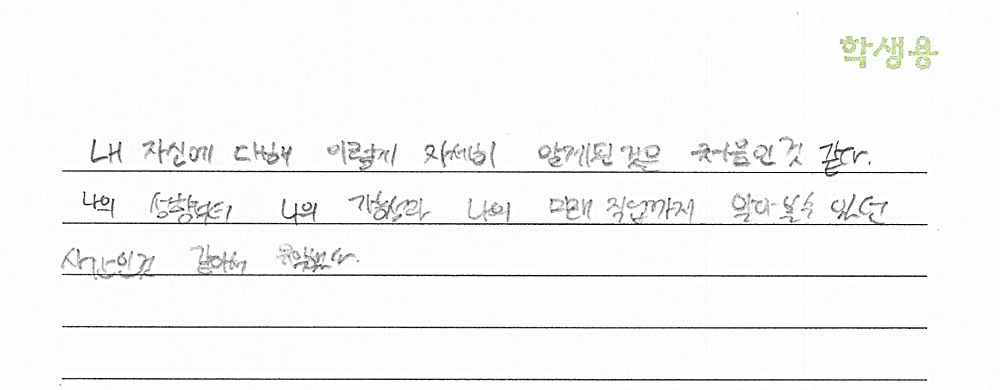 학생용
내 자신에 대해 이렇게 자세히 알게된 것은 처음인것 같다.
나의 성향부터 나의 가능성과 나의 미래 직업까지 알아 볼수 있던
시간인것 같아서 유익했다.